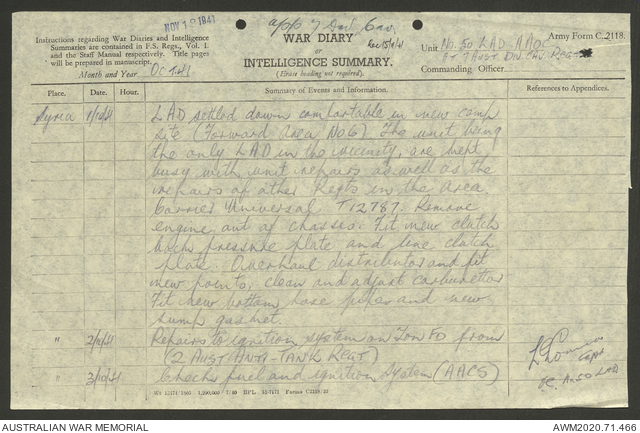 NOV 19 1941
app 7 Div Cav
Army Form C.2118.
Instructions regarding War Diaries and Intelligence
Summaries are contained in F.S. Regs., Vol. I.
and the Staff Manual respectively. Title pages
will be prepared in manuscript.
WAR DIARY
or
INTELLIGENCE SUMMARY.
(Erase heading not required).
Unit No. 50 LAD AAOC
7 AUST DIV CAV REGT
Month and Year Oct 41
Commanding Officer
Place. Date. Hour. Summary of Events and Information. References to Appendices.
Syria 1/10/41 LAD settled down comfortable in new camp
site (Forward Area No6) The unit being
the only LAD in the vicinity, are kept
busy with unit repairs as well as the
repairs of other Regts in the area
Carrier Universal T12787. Remove
engine out of chassis. Fit new clutch
back pressure plate and line clutch
plate. Overhaul distributor and fit
new points, clean and adjust carburettor
Fit new bottom hose and new
sump gasket
" 2/10/41 Repairs to ignition system on Ton FD from
(2 AUST ANTI-TANK REGT)
" 3/10/41 Check fuel and ignition system (AACS)
Capt
OC. A 50 LAD
AUSTRALIAN WAR MEMORIAL
AWM2020.71.466